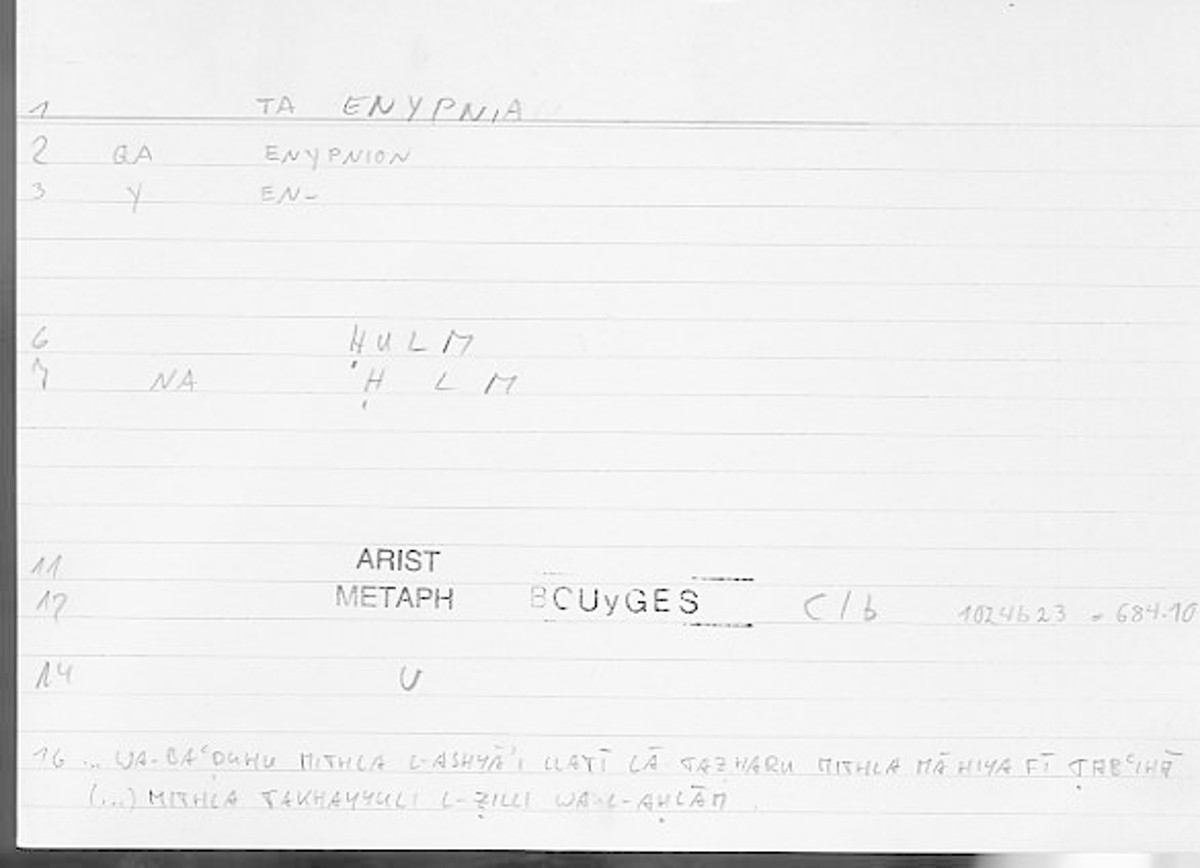 1 TA ENYPNIA
2 QA ENYPNION
3 Y EN-
6 ḤULM
7 NA Ḥ L M
11 ARIST
12 METAPH BOUyGES C/b 1024b23 = 684.10
14 U
16 ... WA-BAʿḌUHU MITHLA L-ASHYĀʾI LLATĪ LĀ TAẒHARU MITHLA MĀ HIYA FĪ ṬABʿIHĀ
(...) MITHLA TAKHAYYULI L-ẒILLI WA-L-AḤLĀM